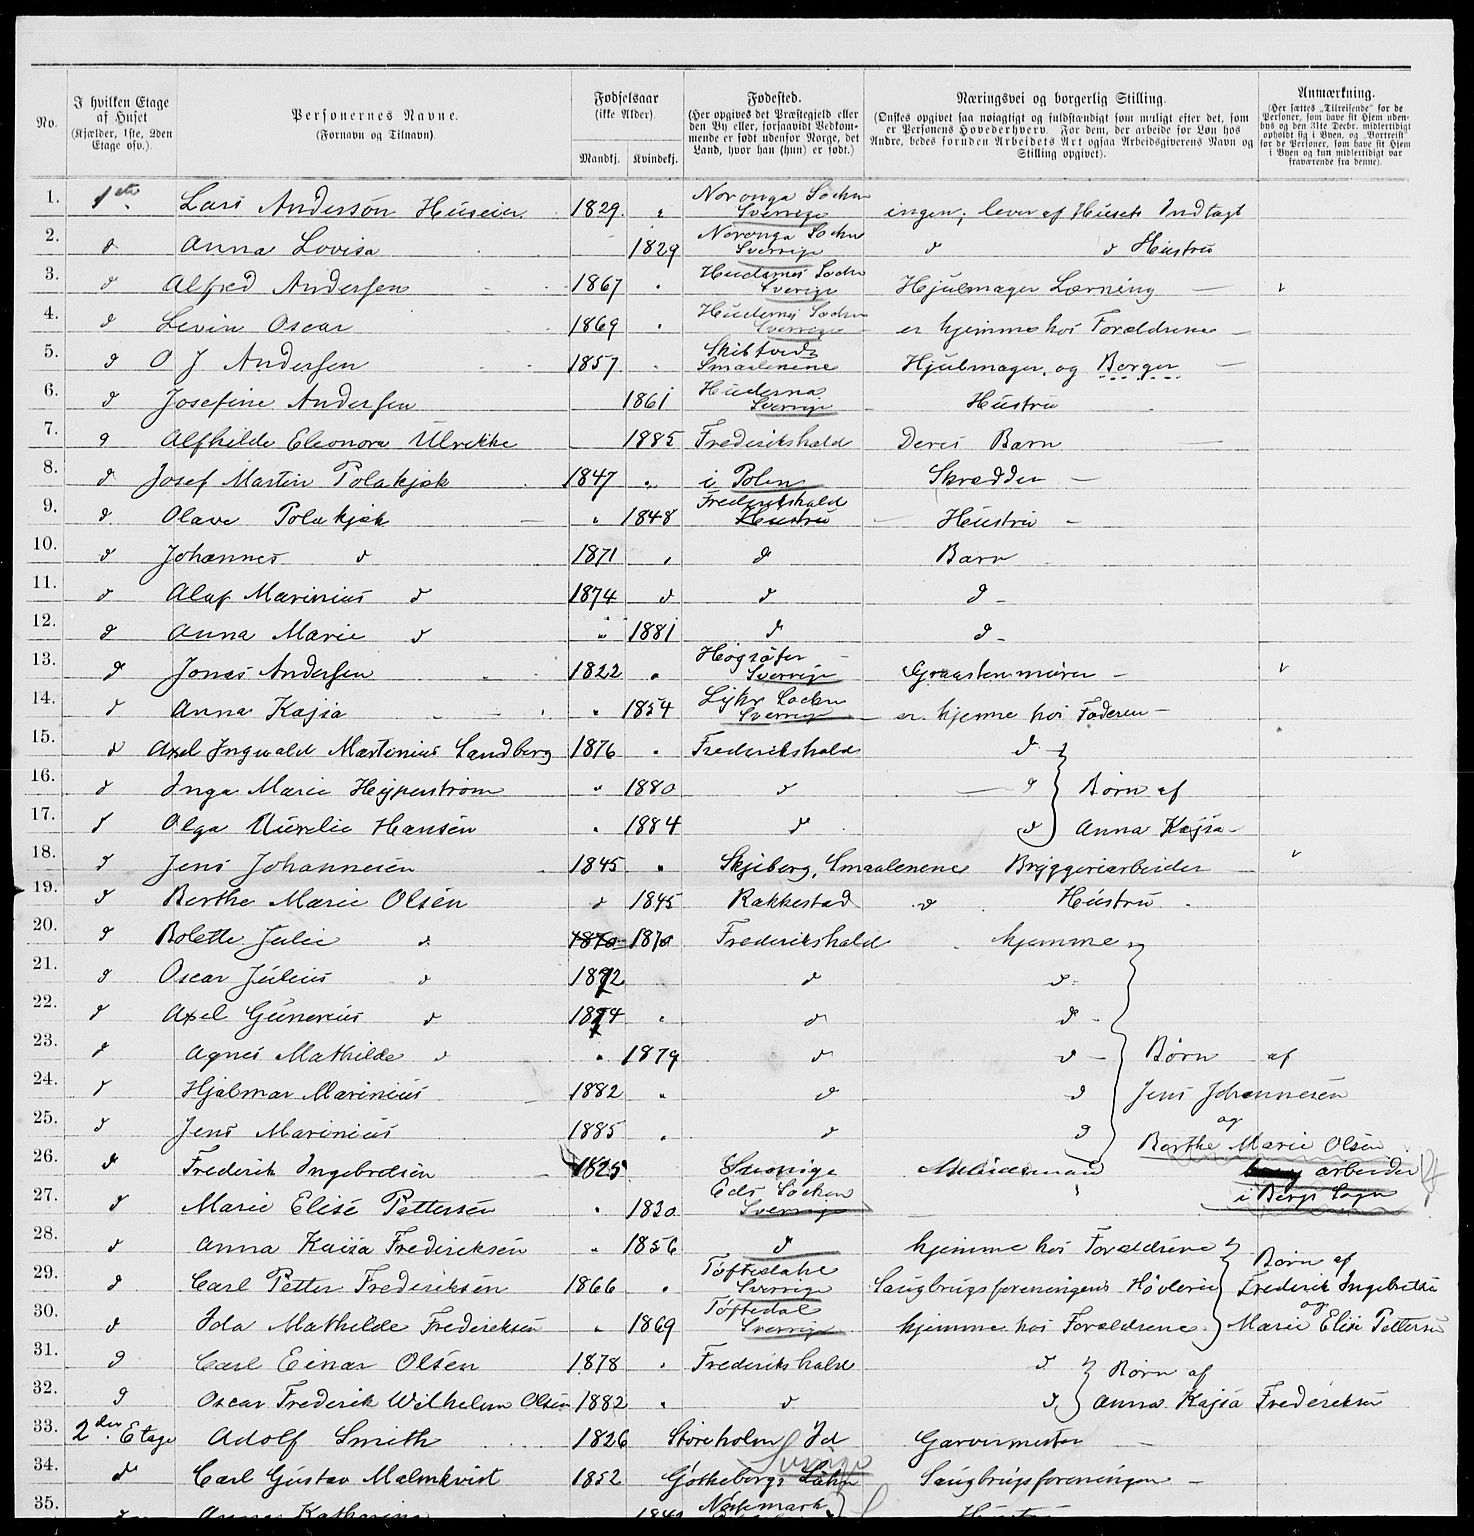 No. I hvilken Etage af Huset (Kjælder, 1ste, 2den Etage osv.). Personernes Navne. (Fornavn og Tilnavn). Fødselsaar (ikke Alder). Mandkj. Kvindekj. Fødested. (Her opgives det Præstegjeld eller den By eller, forsaavidt Vedkommende er født udenfor Norge, det Land, hvor han (hun) er født.) Næringsvei og borgerlig Stilling. (Ønskes opgivet saa nøiagtigt og fuldstændigt som muligt efter det, som er Personens Hovederhverv. For dem, der arbeide for Løn hos Andre, bedes foruden Arbeidets Art ogsaa Arbeidsgiverens Navn og Stilling opgivet). Anmærkning. (Her sættes „Tilreisende“ for de Personer, som have sit Hjem udenbys og den 31te Decbr. midlertidigt opholdt sig i Byen, og „Bortreist“ for de Personer, som have sit Hjem i Byen og kun midlertidigt var fraværende fra denne).
1. 1ste Lars Anderson Huseier 1829 Noronga Sockn Sverrige ingen; lever af Husets Indtægt
2. d Anna Lovisa 1829 Noronga Sockn Sverrige d d Hustru
3. d Alfred Andersen 1867 Sockn Sverige Hjulmager Lærning
4. d Levin Oscar 1869 Sockn Sverrige er hjemme hos Forældrene
5. d O J Andersen 1857 Skibtvedt Smaalenene Hjulmager og Borger
6. d Josefine Andersen 1861 Huderna Sverrige Hustru
7. d Alfhilde Eleonora Ulrekke 1885 Frederikshald Deres Barn
8. d Josef Martin Polakjek 1847 i Polen Skrædder
9. d Olave Polakjek 1848 Frederikshald Hustru Hustru
10. d Johannes d 1871 d Barn
11. d Alaf Marinius d 1874 d d d
12. d Anna Marie d 1881 d d
13. d Jonas Andersen 1822 Högsäter Sverrige Graastenmurer
14. d Anna Kajsa 1854 Sockn Sverrige er hjemme hos Faderen
15. d Axel Ingvald Martinius Sandberg 1876 Frederikshald d
16. d Inga Marie Heijerström 1880 d d Børn af
17. d Olga Aurelie Hansen 1884 d d Anna Kajsa
18. d Jens Johannesen 1845 Skjeberg, Smaalenene Bryggeriarbeider
19. d Berthe Marie Olsen d 1845 Rakkestad d Hustru
20. d Bolette Julie d 1870 1870 Frederikshald hjemme
21. d Oscar Julius d 1872 d d
22. d Axel Gunerius d 1874 d d
23. d Agnes Mathilde d 1879 d d Børn af
24. d Hjalmar Marinius 1882 d d Jens Johannesen
25. d Jens Marinius 1885 d d og Berthe Marie Olsen
26. d Frederik Ingebretsen 1825 Sverrige arbeider
27. d Marie Elise Pettersen 1830 Eds Socken Sverrige i Bergs Sogn
28. d Anna Kaisa Frederiksen 1856 d hjemme hos Forældrene Børn af
29. d Carl Petter Frederiksen 1866 Töftedahl Sverrige Saugbrugsforeningens Høvlerie Frederik Ingebretsen
30. d Ida Mathilde Frederiksen 1869 Töftedal Sverrige hjemme hos Forældrene og Marie Elise Pettersen
31. d Carl Einar Olsen 1878 Frederikshald d Børn af
32. d Oscar Frederik Wilhelm Olsen 1882 d d Anna Kajsa Frederiksen
33. 2den Etage Adolf Smith 1826 Storeholm Id Garvermester
34. d Carl Gustav Malmkvist 1852 Götheborgs Lähn Sverrige Saugbrugsforeningen
35. Anna Katharina Nösemark